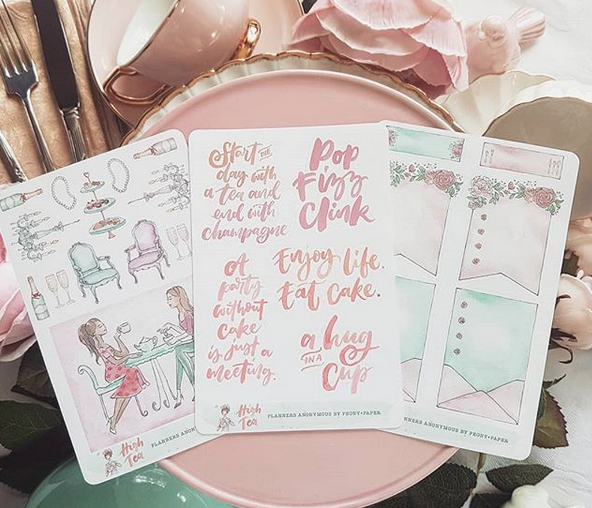 Start THE
day with
a tea and
end with
champagne
Pop
Fizz
Clink
A
party
without
cake
is just a
meeting.
Enjoy life.
Eat cake.
a hug
IN A
Cup
High
Tea
PLANNERS ANONYMOUS BY PEONY+PAPER
High
Tea
PLANNERS ANONYMOUS
PLANNERS ANONYMOUS BY PEONY+PAPER